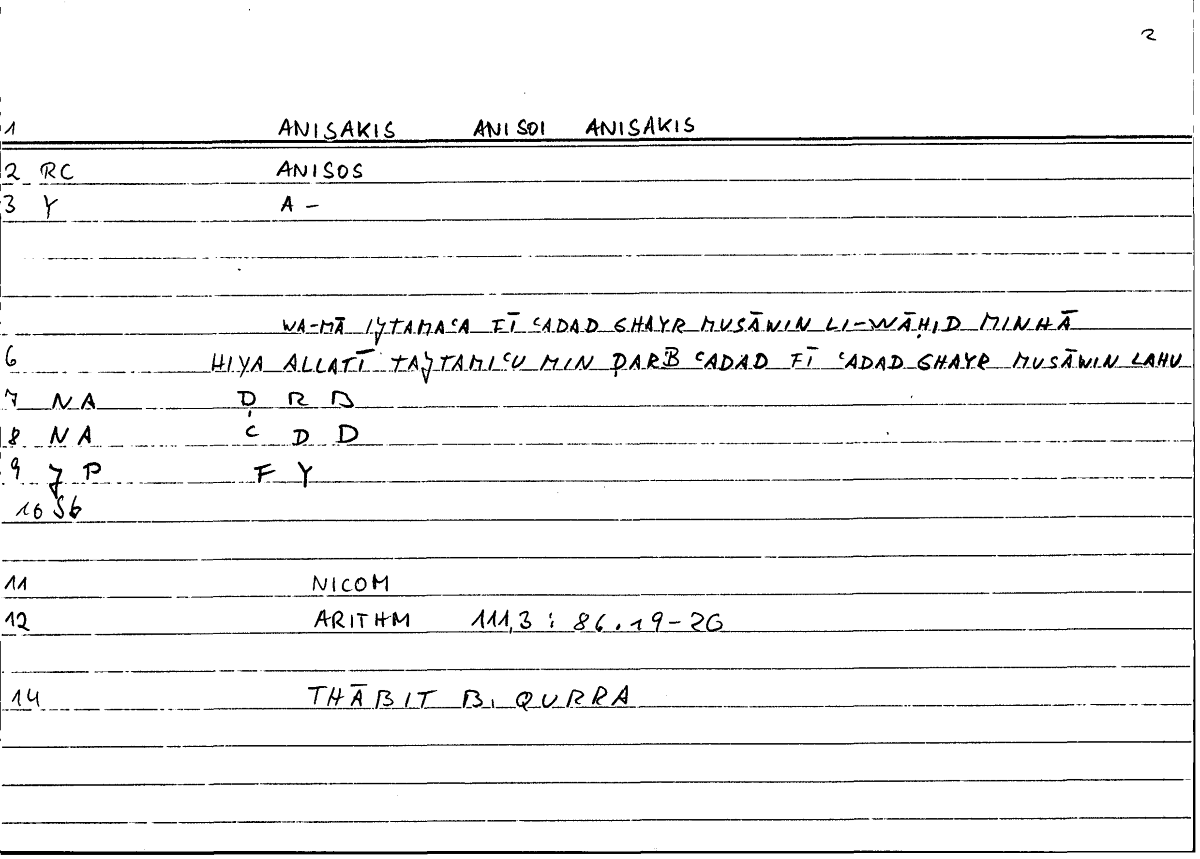 2
1 ANISAKIS ANISOI ANISAKIS
2 RC ANISOS
3 Y A –
WA-MĀ IJTAMAʿA FĪ ʿADAD GHAYR MUSĀWIN LI-WĀḤID MINHĀ
6 HIYA ALLATĪ TAJTAMIʿU MIN ḌARB ʿADAD FĪ ʿADAD GHAYR MUSĀWIN LAHU
7 NA Ḍ R B
8 NA ʿ D D
9 J P F Y
10 Sb
11 NICOM
12 ARITHM 111,3 : 86.19-20
14 THĀBIT B. QURRA